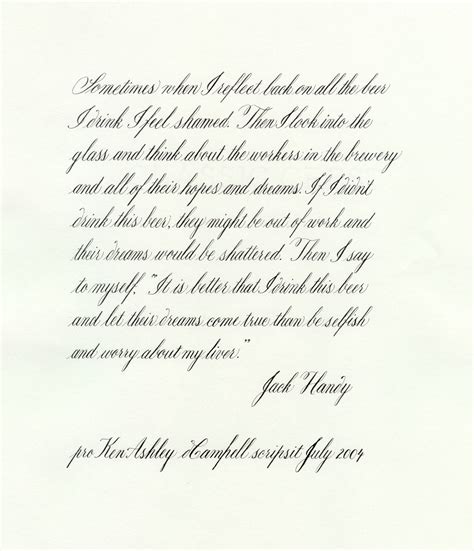 Sometimes when I reflect back on all the beer
I drink I feel shamed. Then I look into the
glass and think about the workers in the brewery
and all of their hopes and dreams. If I didn't
drink this beer, they might be out of work and
their dreams would be shattered. Then I say
to myself, "It is better that I drink this beer
and let their dreams come true than be selfish
and worry about my liver."
Jack Handy
pro Ken Ashley dCampfell scripsit July 2004